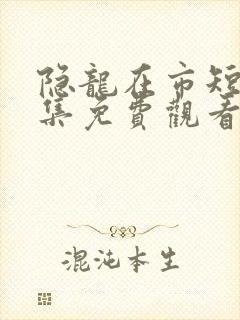 隐龍在市短
集免費觀看
混沌本生